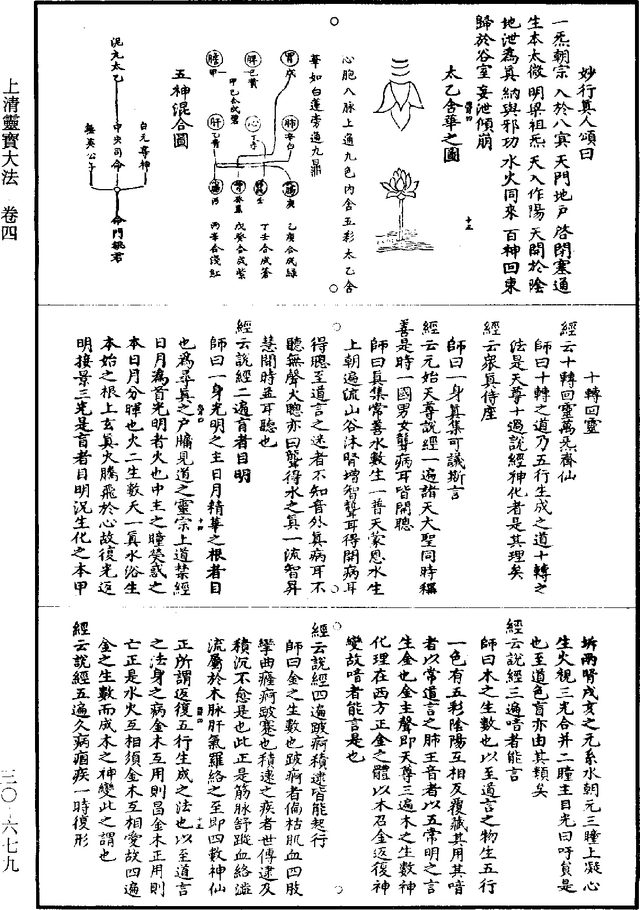 妙行真人頌曰
一炁朝宗 入於八冥 天門地戶 啓閉塞通
生本太微 明梁祖炁 天入作陽 天關於陰
地泄爲真 納與邪功 水火同來 百神回東
歸於谷室 妄泄傾崩
太乙含華之圖
心胞八脉上通九色内含五彩太乙含
華如白蓮旁通九鼎
胃戊
肺辛白
脾己黄
心
膽甲
肝乙青
甲己合成碧
庚
乙庚合成緑
壬
丁壬合成蒼
腎癸黑
戊癸合成紫
丙
丙辛合淺紅
五神混合圖
白元尊神
泥丸太乙
中央司命
命門桃君
無英公子
上清靈寶大法 卷四
十轉回靈
經云十轉回靈萬炁齊仙
師曰十轉之道乃五行生成之道十轉之
法是天尊十過說經神化者是其理矣
經云衆真侍座
師曰一身真集可議斯言
經云元始天尊說經一遍諸天大聖同時稱
善是時一國男女聾病耳皆開聰
師曰真集常善水數生一普天蒙恩水生
上朝遍流山谷沐腎增智聾耳得開病耳
得聰至道言之迷者不知音外真病耳不
聽無聲大聰亦曰聾得水之真一流智昇
慧開時孟耳聰也
經云說經二遍盲者目明
師曰一身光明之主日月精華之根者目
也爲尋真之户牖見道之靈宗上道禁經
日月爲首光明者火也中主之瞳熒惑之
本日月分暉也火二生數天一真水浴生
本始之根上玄真火騰飛於心故復光返
明接景三光是盲者目明況生化之本甲
坼兩腎戊亥之元系水朝元三瞳上凝心
生火視三光合并二瞳主目光曰吁貧是
也至道色盲亦由其類矣
經云說經三遍喑者能言
師曰木之生數也以至道言之物生五行
一色有五彩陰陽互相反覆藏其用其喑
者以常道言之肺王音者以五常明之言
生金也金主聲即天尊三遍木之生數神
化理在西方正金之體以木召金返復神
變故喑者能言是也
經云說經四遍跛痾積逮皆能起行
師曰金之生數也跛痾者偏枯肌血四肢
攣曲癃痾跛蹇也積逮之疾者世傳逮及
積沉不愈是也此正是筋脉舒蹤血絡滋
流屬於木脉肝氣羅絡之至即四數神仙
正所謂返復五行生成之法也以至道言
之法身之病金木互用則昌金木正用則
亡正是水火互相須金木互相愛故四遍
金之生數而成木之神變此之謂也
經云說經五遍久病痼疾一時復形
三〇·六七九